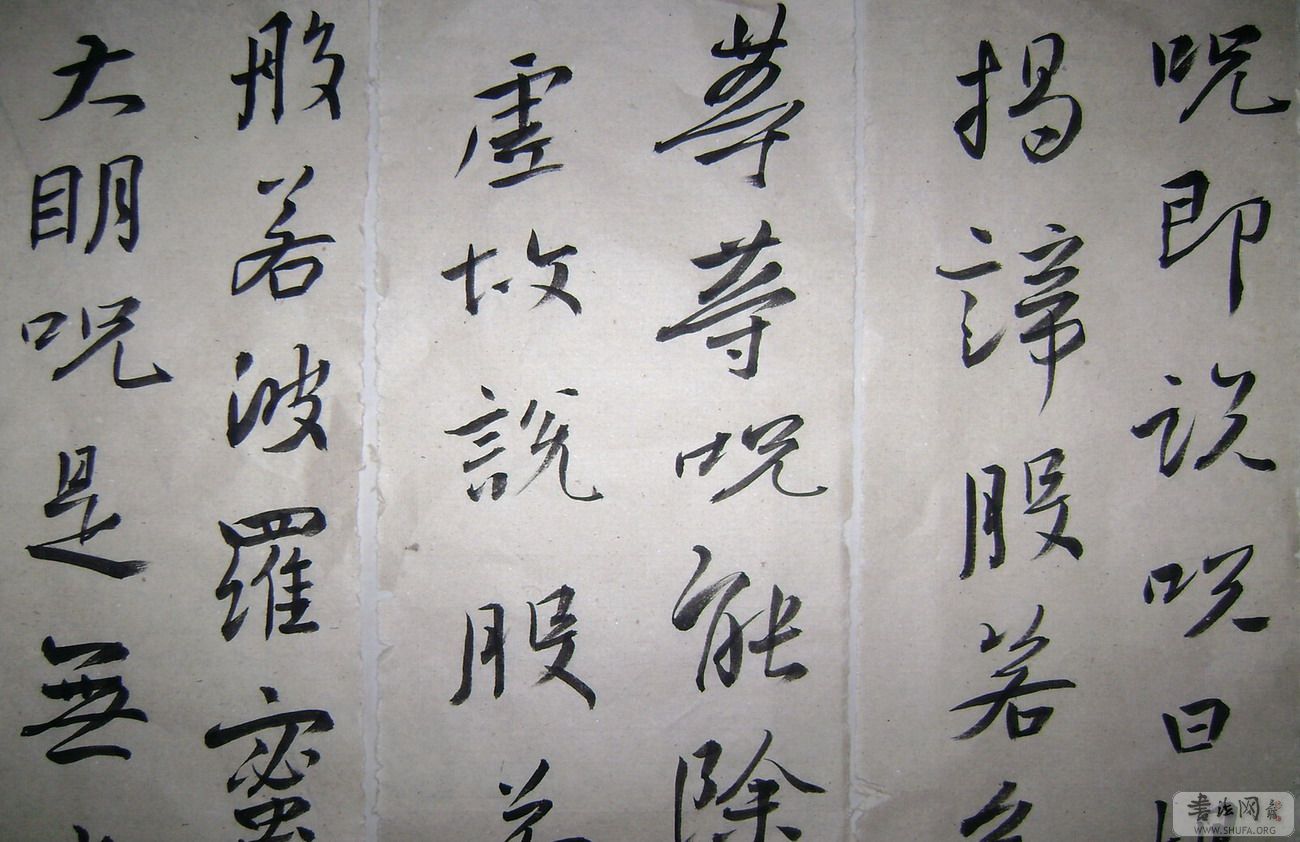 呪即説呪曰
揭諦股若
等等呪能除
虛故說股若
般若波羅蜜
大明呪是無
书法网
WWW.SHUFA.ORG